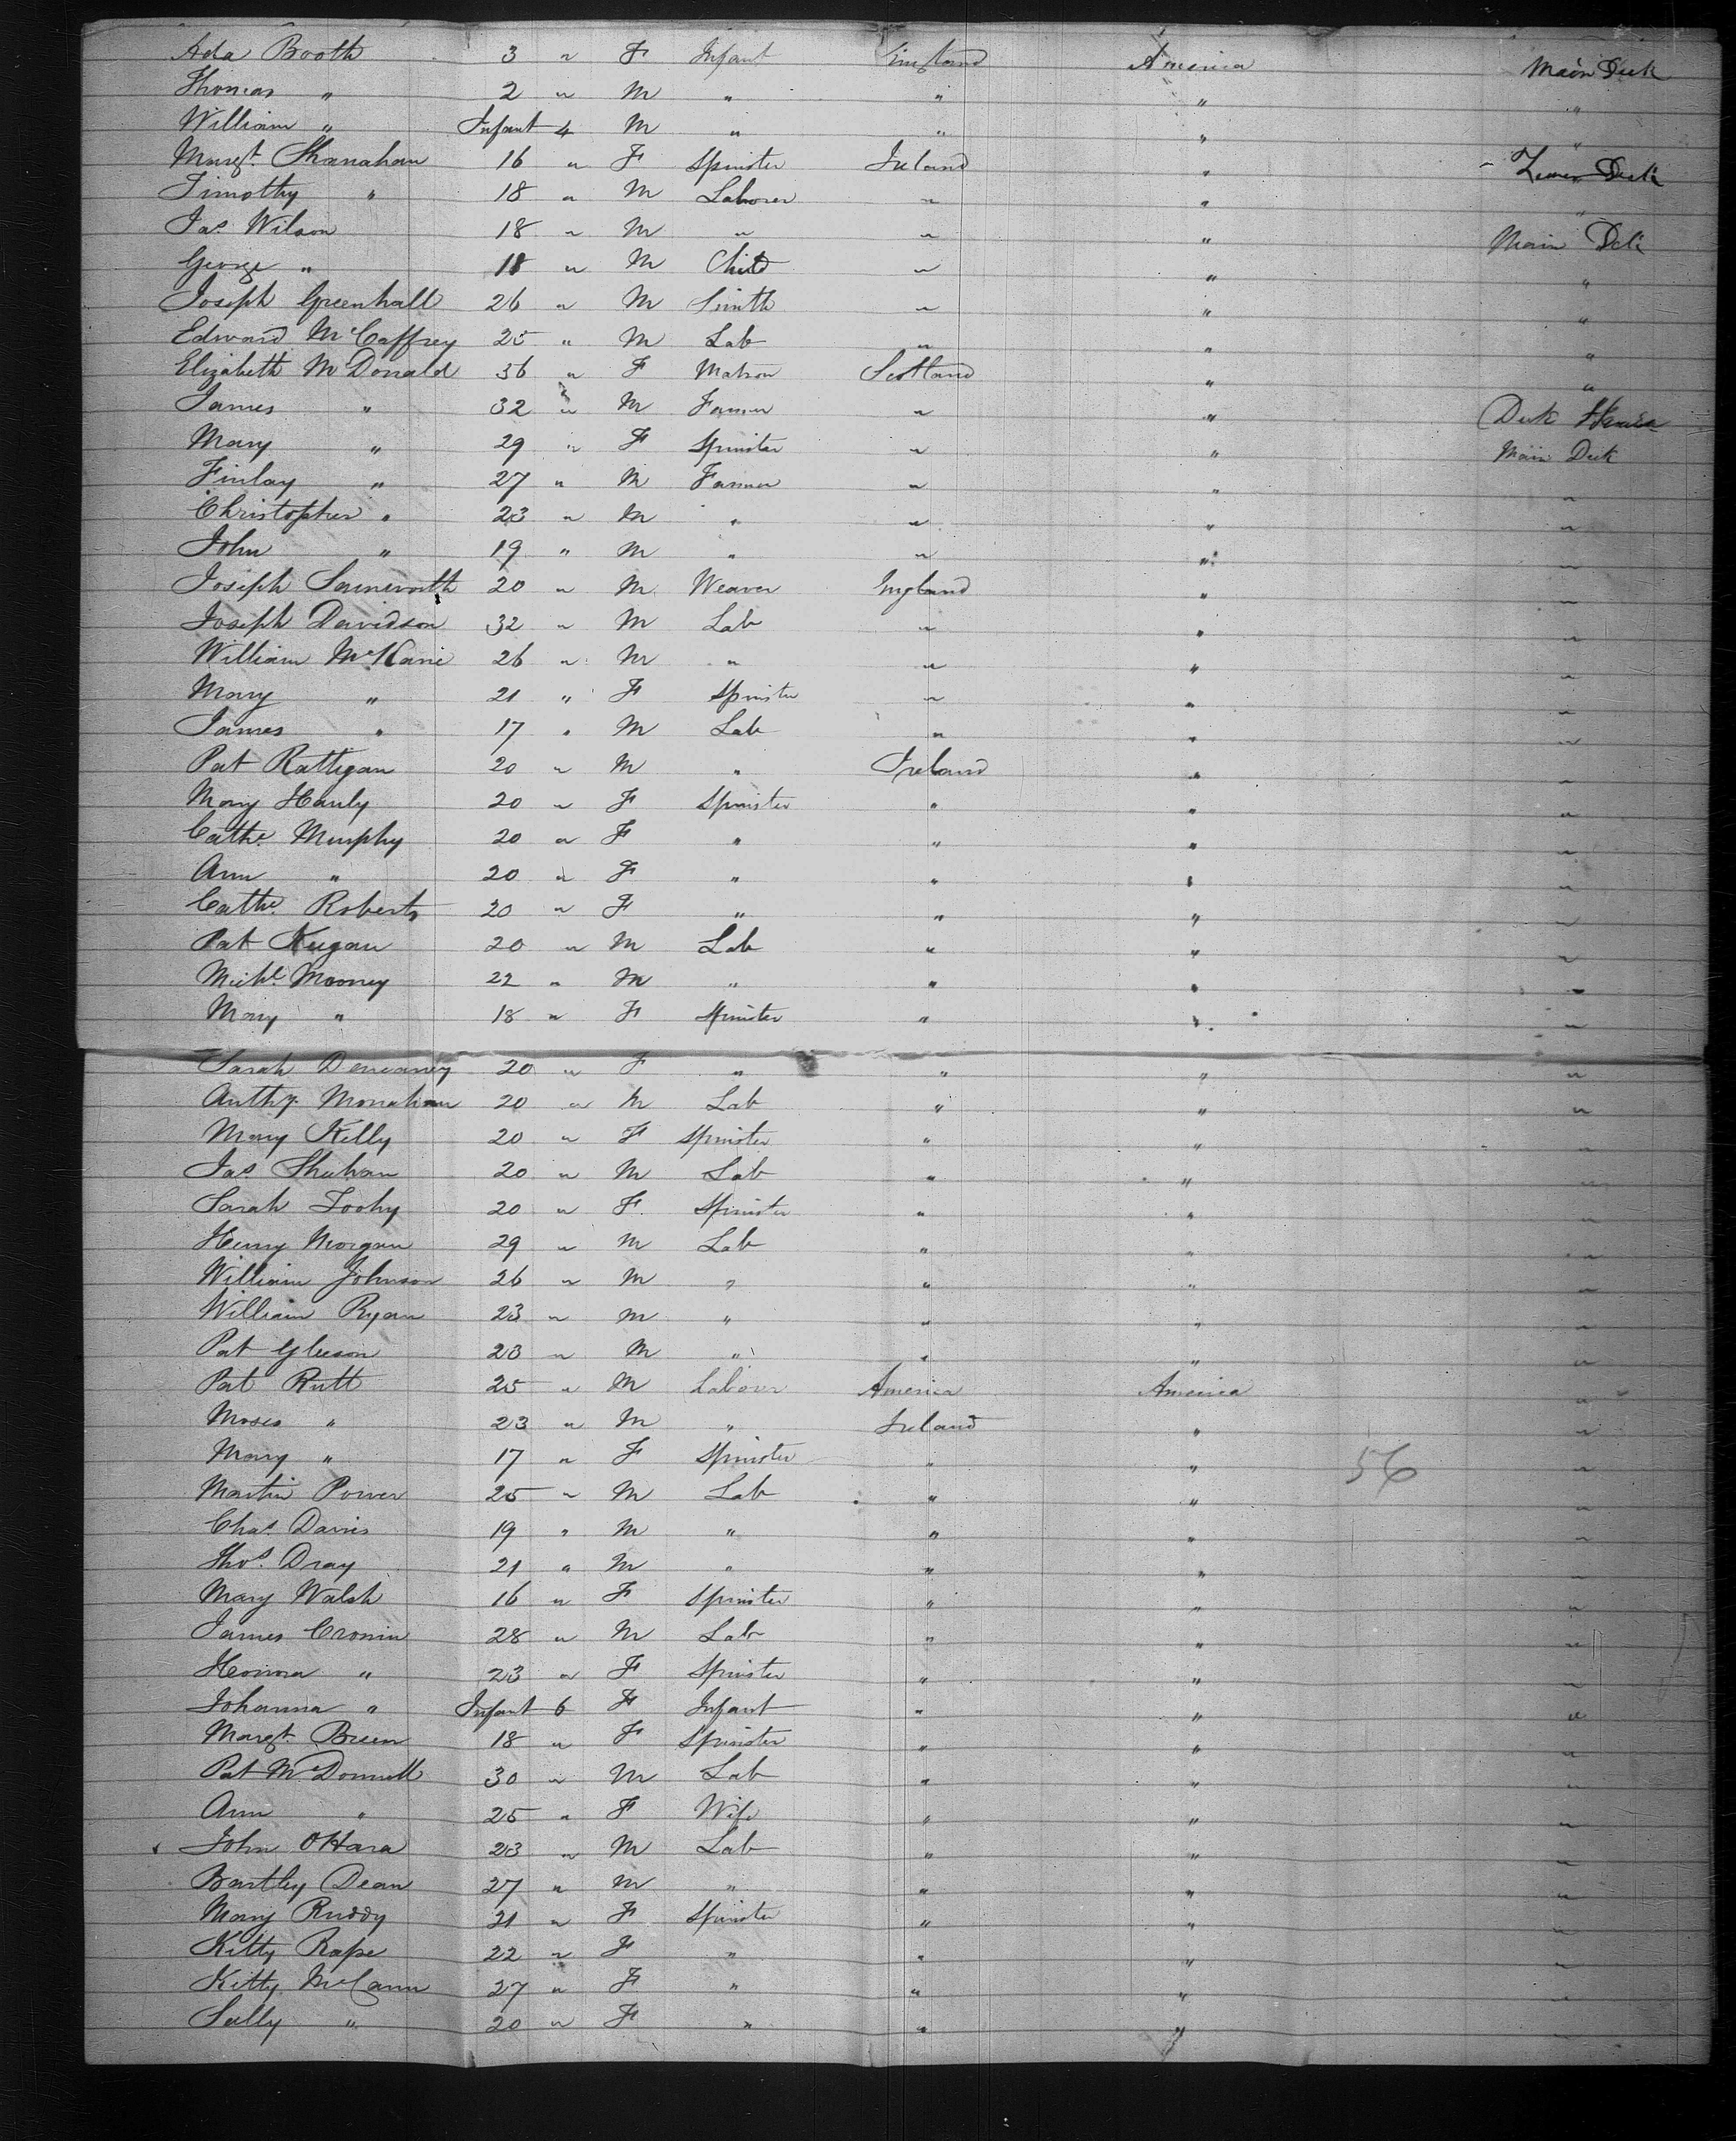 Ada Booth 3 " F Infant England America Main Deck
Thomas " 2 " M " " " "
William " Infant 4 M " " " "
Margt. Shanahan 16 " F Spinster Ireland " Lower Deck
Timothy " 18 " M Laborer " " "
Jas. Wilson 18 " M " " " Main Deck
George " 18 " M Child " " "
Joseph Greenhall 26 " M Smith " " "
Edward McCaffrey 25 " M Lab " " "
Elizabeth McDonald 36 " F Matron Scotland " "
James " 32 " M Farmer " " Deck House
Mary " 29 " F Spinster " " Main Deck
Finlay " 27 " M Farmer " " "
Christopher " 23 " M " " " "
John " 19 " M " " " "
Joseph 20 " M Weaver England " "
Joseph Davidson 32 " M Lab " " "
William McKane 26 " M " " " "
Mary " 21 " F Spinster " " "
James " 17 " M Lab " " "
Pat Rattigan 20 " M " Ireland " "
Mary Hanly 20 " F Spinster " " "
Cathe. Murphy 20 " F " " " "
Ann " 20 " F " " " "
Cathe. Roberts 20 " F " " " "
Pat Keegan 20 " M Lab " " "
Michl. Mooney 22 " M " " " "
Mary " 18 " F Spinster " " "
Sarah 20 " F " " " "
Anthy. Monahan 20 " M Lab " " "
Mary Kelly 20 " F Spinster " " "
Jas. Shehan 20 " M Lab " " "
Sarah Toohy 20 " F Spinster " " "
Henry Morgan 29 " M Lab " " "
William Johnson 26 " M " " " "
William Ryan 23 " M " " " "
Pat Gleeson 23 " M " " " "
Pat Rutt 25 " M Labour America America "
Moses " 23 " M " Ireland " "
Mary " 17 " F Spinster " " 56 "
Martin Power 25 " M Lab " " "
Chas. Davis 19 " M " " " "
Thos. Dray 21 " M " " " "
Mary Walsh 16 " F Spinster " " "
James Cronin 28 " M Lab " " "
Honora " 23 " F Spinster " " "
Johanna " Infant 6 F Infant " " "
Margt. Breen 18 " F Spinster " " "
Pat McDonnell 30 " M Lab " " "
Ann " 25 " F Wife " " "
John O'Hara 23 " M Lab " " "
Bartley Dean 27 " M " " " "
Mary Ruddy 21 " F Spinster " " "
Kitty Rape 22 " F " " " "
Kitty McCann 27 " F " " " "
Sally " 20 " F " " "